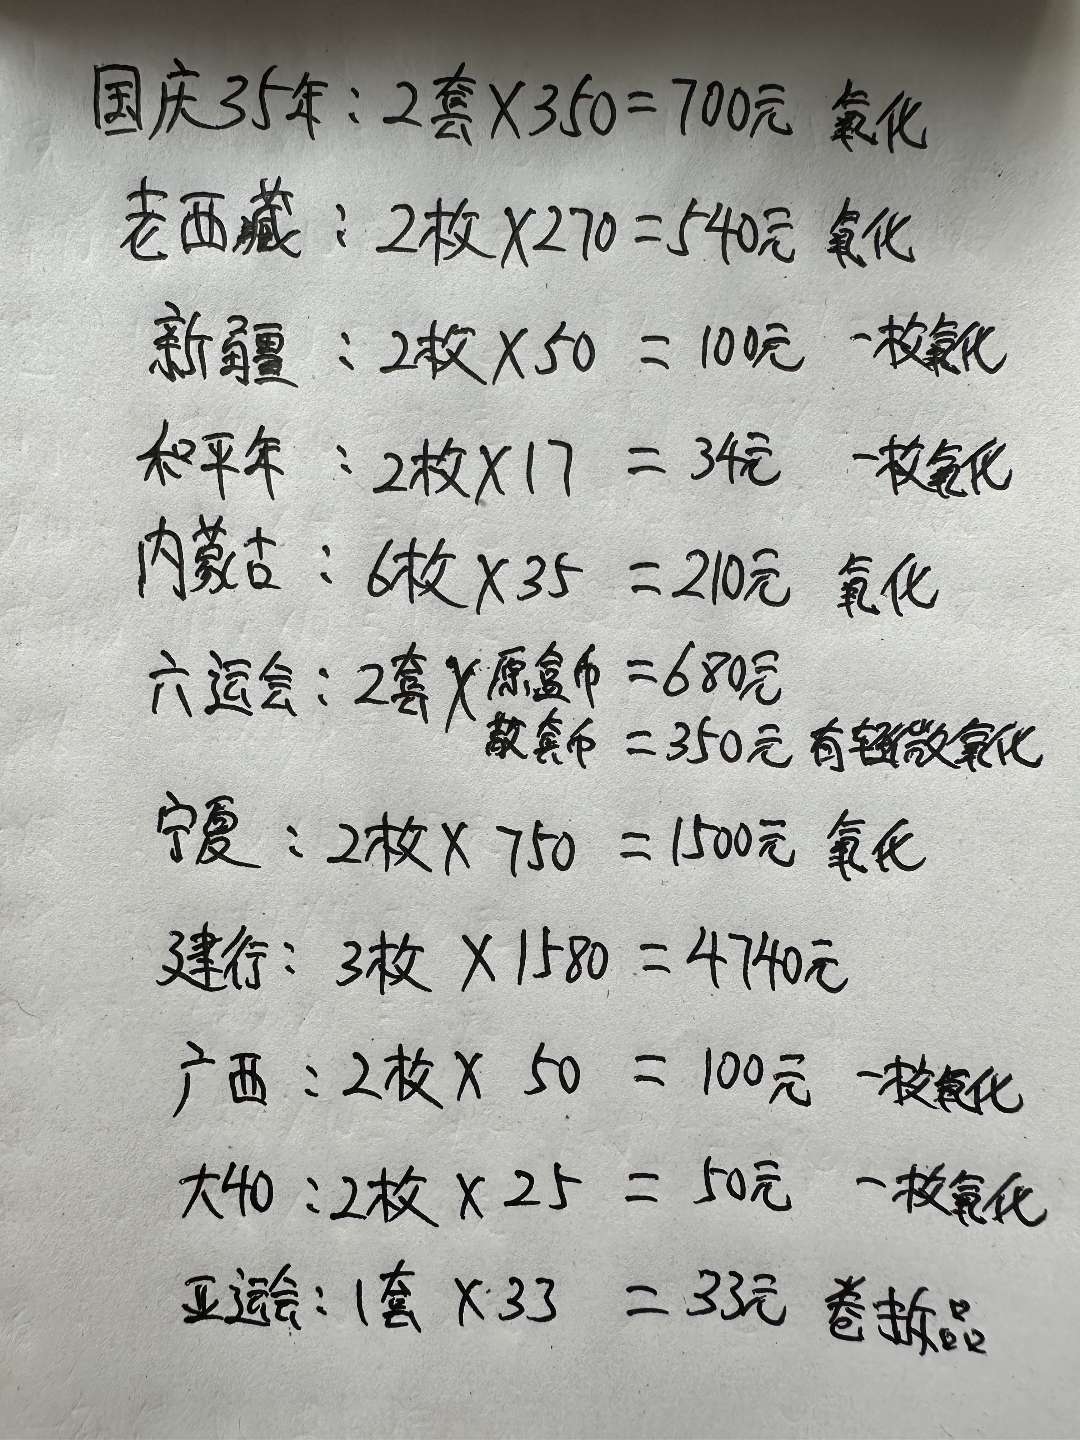 国庆35年：2套×350=700元 氧化
老西藏：2枚×270=540元 氧化
新疆：2枚×50=100元 一枚氧化
和平年：2枚×17=34元 一枚氧化
内蒙古：6枚×35=210元 氧化
六运会：2套×原盒币=680元
散套币=350元 有轻微氧化
宁夏：2枚×750=1500元 氧化
建行：3枚×1580=4740元
广西：2枚×50=100元 一枚氧化
大40：2枚×25=50元 一枚氧化
亚运会：1套×33=33元 卷拆品